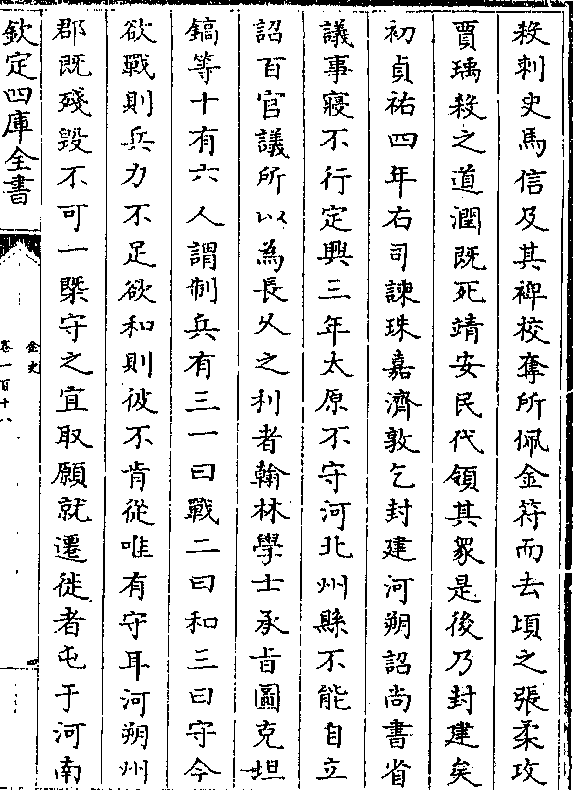 殺刺史馬信及其裨校奪所佩金符而去頃之張柔攻
賈瑀殺之道潤既死靖安民代領其衆是後乃封建矣
初貞祐四年右司諫珠嘉濟敦乞封建河朔詔尚書省
議事寢不行定興三年太原不守河北州縣不能自立
詔百官議所以為長久之利者翰林學士承旨圖克坦
鎬等十有六人謂制兵有三一曰戰二曰和三曰守今
欲戰則兵力不足欲和則彼不肯從唯有守耳河朔州
郡既殘毀不可一槩守之宜取願就遷徙者屯于河南
欽定四庫全書
金史
卷一百十八